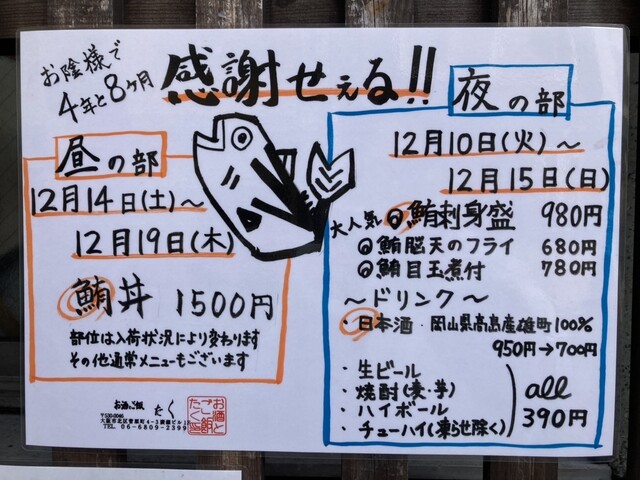 お陰様で
4年と8ヶ月
感謝せぇる!!
昼の部
12月14日(土)～
12月19日(木)
鮪丼 1500円
部位は入荷状況により変わります
その他通常メニューもございます
お酒とご飯 たく
〒530-0046
大阪市北区菅原町4-2
TEL 06-6809-2399
お酒と
ご飯
たく
夜の部
12月10日(火)～
12月15日(日)
大人気 @鮪刺身盛 980円
@鮪脳天のフライ 680円
@鮪目玉煮付 780円
～ドリンク～
・日本酒・岡山県高島産雄町100%
950円→700円
・生ビール
・焼酎(麦・芋)
・ハイボール
・チューハイ(凍らせ除く)
all
390円